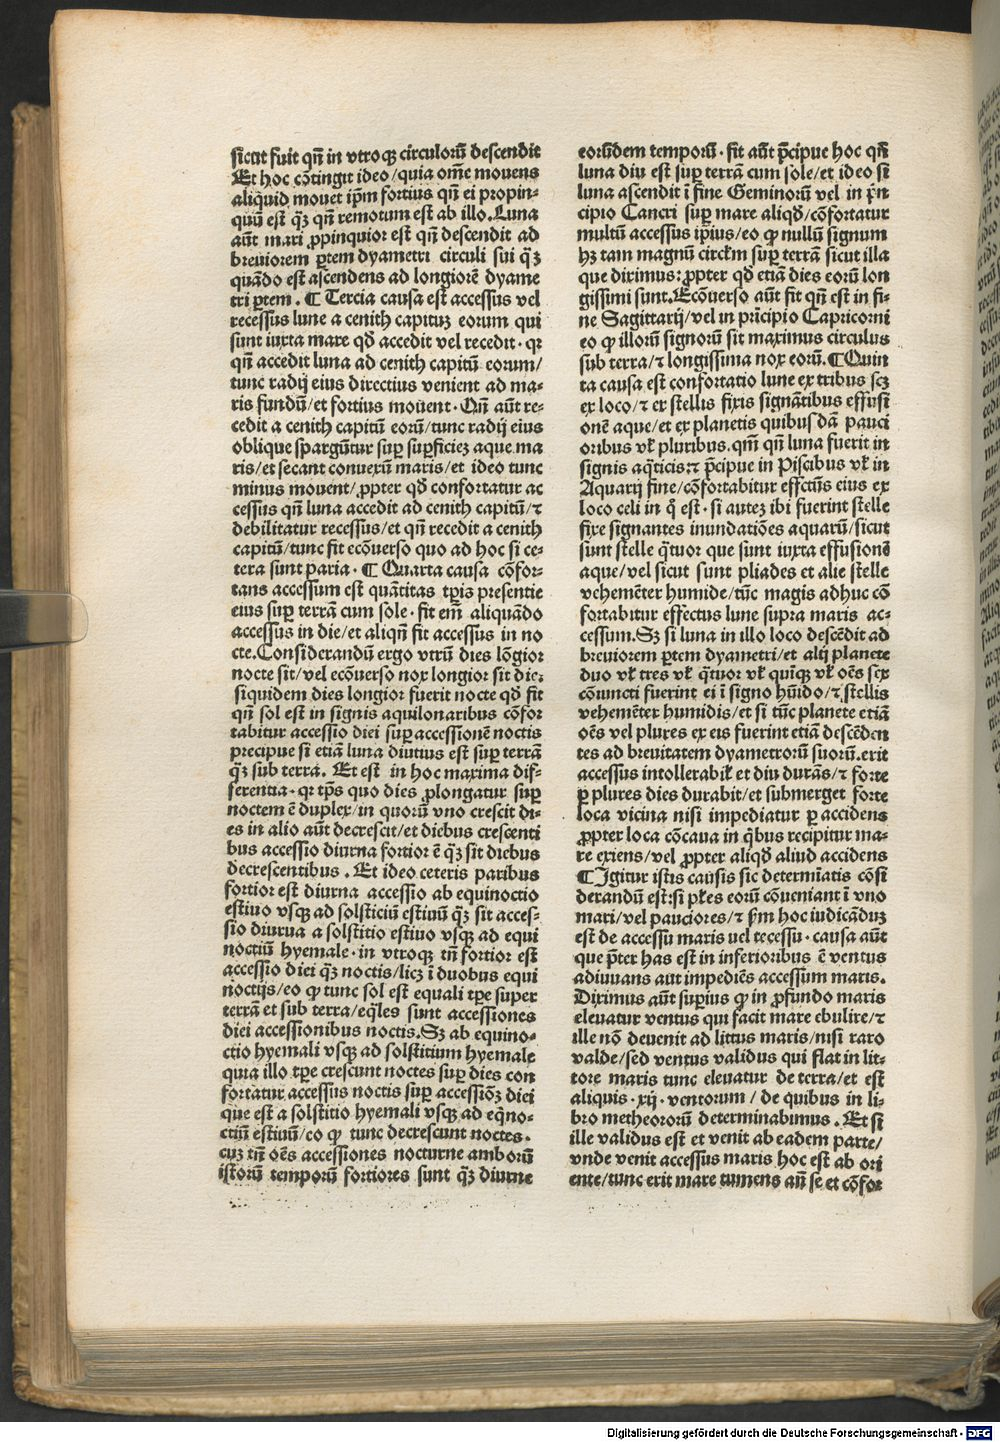 sicut fuit qñ in vtroqꝫ circulorū descendit
Et hoc cōtingit ideo/quia om̄e mouens
aliquid mouet ip̄m fortius qñ ei propin-
quū est q̄ꝫ qñ remotum est ab illo.Luna
aūt mari ꝓpinquior est qñ descendit ad
breuiorem ꝑtem dyametri circuli sui q̄ꝫ
quādo est ascendens ad longiorē dyame
tri ꝑtem. ¶ Tercia causa est accessus vel
recessus lune a cenith capituꝫ eorum qui
sunt iuxta mare qđ accedit vel recedit· qꝛ
qñ accedit luna ad cenith capitū eorum/
tunc radij eius directius venient ad ma-
ris fundū/et fortius mouent· Qñ aūt re-
cedit a cenith capitū eorū/tunc radij eius
oblique spargūtur suꝑ suꝑficieꝫ aque ma
ris/et secant conuexū maris/et ideo tunc
minus mouent/ꝓpter qđ confortatur ac
cessus qñ luna accedit ad cenith capitū/⁊
debilitatur recessus/et qñ recedit a cenith
capitū/tunc fit ecōuerso quo ad hoc si ce-
tera sunt paria· ¶ Quarta causa cōfor-
tans accessum est quātitas tꝑis presentie
eius suꝑ terrā cum sole· fit em̄ aliquādo
accessus in die/et aliqñ fit accessus in no
cte.Considerandū ergo vtrū dies lōgior
nocte sit/vel ecōuerso nox longior sit die:
siquidem dies longior fuerit nocte qđ fit
qñ sol est in signis aquilonaribus cōfor
tabitur accessio diei suꝑ accessionē noctis
precipue si etiā luna diutius est suꝑ terrā
q̄ꝫ sub terra. Et est in hoc maxima dif-
ferentia· qꝛ tp̄s quo dies ꝓlongatur suꝑ
noctem ē duplex/in quorū vno crescit di-
es in alio aūt decrescit/et diebus crescenti
bus accessio diurna fortior ē q̄ꝫ sit diebus
decrescentibus . Et ideo ceteris paribus
fortior est diurna accessio ab equinoctio
estiuo vsqꝫ ad solsticiū estiuū q̄ꝫ sit acces-
sio diurua a solstitio estiuo vsqꝫ ad equi
noctiū hyemale· in vtroqꝫ tñ fortior est
accessio diei q̄ꝫ noctis/licꝫ ī duobus equi
noctijs/eo ꝙ tunc sol est equali tꝑe super
terrā et sub terra/eq̄les sunt accessiones
diei accessionibus noctis.Sꝫ ab equino-
ctio hyemali vsqꝫ ad solstitium hyemale
quia illo tꝑe crescunt noctes suꝑ dies con
fortatur accessus noctis suꝑ accessiōꝫ diei
que est a solstitio hyemali vsqꝫ ad eq̄no-
ctiū estiuū/eo ꝙ tunc decrescunt noctes.
cuꝫ tñ oēs accessiones nocturne amborū
istorū temporū fortiores sunt q̄ꝫ diurne
eorūdem temporū· fit aūt p̄cipue hoc qñ
luna diu est suꝑ terrā cum sole/et ideo si
luna ascendit ī fine Geminorū vel in p̄n
cipio Cancri suꝑ mare aliqđ/cōfortatur
multū accessus ip̄ius/eo ꝙ nullū signum
hꝫ tam magnū circl̄m suꝑ terrā sicut illa
que diximus: ꝓpter qđ etiā dies eorū lon
gissimi sunt.Ecōuerso aūt fit qñ est in fi-
ne Sagittarij/vel in pri̅cipio Capricorni
eo ꝙ illorū signorū sit maximus circulus
sub terra/⁊ longissima nox eorū.¶ Quin
ta causa est confortatio lune ex tribus scꝫ
ex loco/⁊ ex stellis fixis signātibus effusi
onē aque/et ex planetis quibusdā pauci
oribus vl̄ pluribus. qm̄ qñ luna fuerit in
signis aq̄ticis:⁊ p̄cipue in Piscibus vl̄ in
Aquarij fine/cōfortabitur effctūs eius ex
loco celi in q̊ est· si auteꝫ ibi fuerint stelle
fixe signantes inundatiōes aquarū/sicut
sunt stelle q̄tuor que sunt iuxta effusionē
aque/vel sicut sunt pliades et alie stelle
vehemēter humide/tūc magis adhuc cō
fortabitur effectus lune supra maris ac-
cessum.Sꝫ si luna in illo loco descēdit ad
breuiorem ꝑtem dyametri/et alij planete
duo vl̄ tres vl̄ q̄tuor vl̄ quīqꝫ vl̄ oēs sex
cōiuncti fuerint ei ī signo hūido/⁊ stellis
vehemēter humidis/et si tūc planete etiā
oēs vel plures ex eis fuerint etiā descēden
tes ad breuitatem dyametrorū suorū.erit
accessus intollerabil̄ et diu durās/⁊ forte
ꝑ plures dies durabit/et submerget forte
loca vicina nisi impediatur ꝑ accidens
ꝓpter loca cōcaua in q̄bus recipitur ma-
re exiens/vel ꝓpter aliqđ aliud accidens
¶ Igitur istis causis sic determīatis cōsi
derandū est:si pl̄es eorū cōueniant ī vno
mari/vel pauciores/⁊ ẜm hoc iudicāduꝫ
est de accessu maris uel recessu· causa aūt
que p̄ter has est in inferioribus ē ventus
adiuuans aut impediēs accessum maris.
Diximus aūt suꝑius ꝙ in ꝓfundo maris
eleuatur ventus qui facit mare ebulire/⁊
ille nō deuenit ad littus maris/nisi raro
valde/sed ventus validus qui flat in lit-
tore maris tunc eleuatur de terra/et est
aliquis ·xij· ventorum / de quibus in li-
bro metheororū determinabimus . Et si
ille validus est et venit ab eadem parte/
vnde venit accessus maris hoc est ab ori
ente/tunc erit mare tumens añ se et cōfor
Digitalisierung gefördert durch die Deutsche Forschungsgemeinschaft - DFG